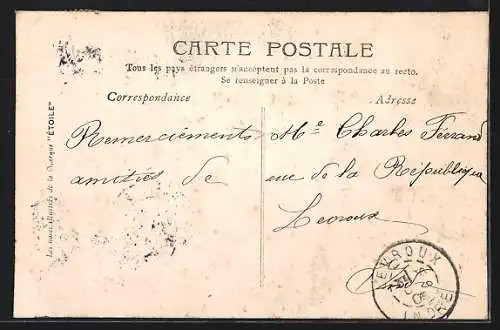 CARTE POSTALE
Tous les pays étrangers n'acceptent pas la correspondance au recto.
Se renseigner à la Poste
Correspondance
Adresse
Remerciements
amitiés de
Mr Charles Ferrand
rue de la République
Levroux
Indre
LEVROUX
INDRE
Les cartes illustrées de la Marque "ÉTOILE"